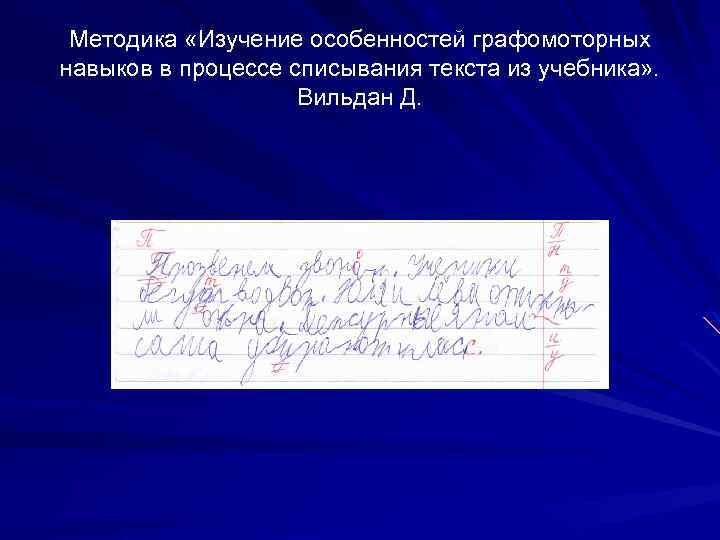 Методика «Изучение особенностей графомоторных
навыков в процессе списывания текста из учебника» .
Вильдан Д.
П П
Н
Прозвенел звонок. Ученики т
у
бегут во двор. Юля и Лёва
окна. Дежурные
саша убирают класс. и
у